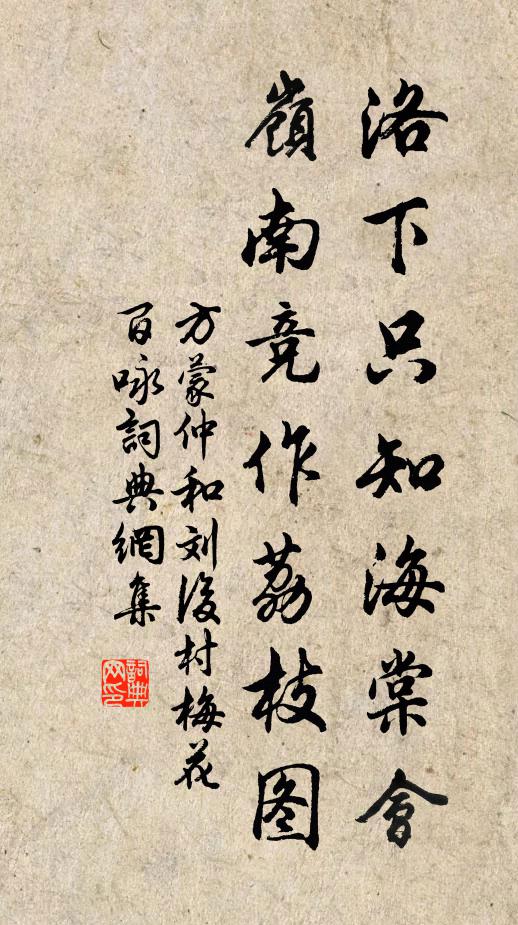 洛下只知海棠會
嶺南竞作荔枝图
方蒙仲和刘後村梅花
百咏詞典網集
詞典網印